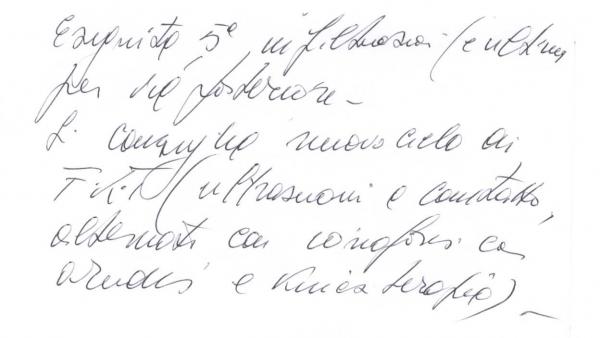 Eseguita 5ª infiltrazioni (e ultima
per via posteriore -
Si consiglia nuovo ciclo di
F.K.T. (ultrasuoni a contatto,
alternati con ionoforesi con
e Kinesiterapia) -